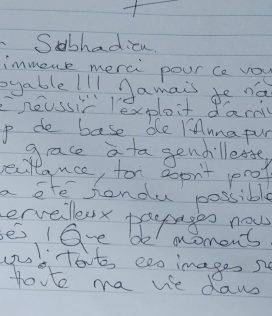 Subhadien.
immense merci pour ce voy
oyable !!! Jamais je n'a
réussir l'exploit d'arriv
p de base de l'Annapur
grace à ta gentillesse,
veillance, ton esprit prof
a été rendu possible
erveilleux paysages nous
és ! Que de moments
urs ! Toutes ces images re
toute ma vie dans